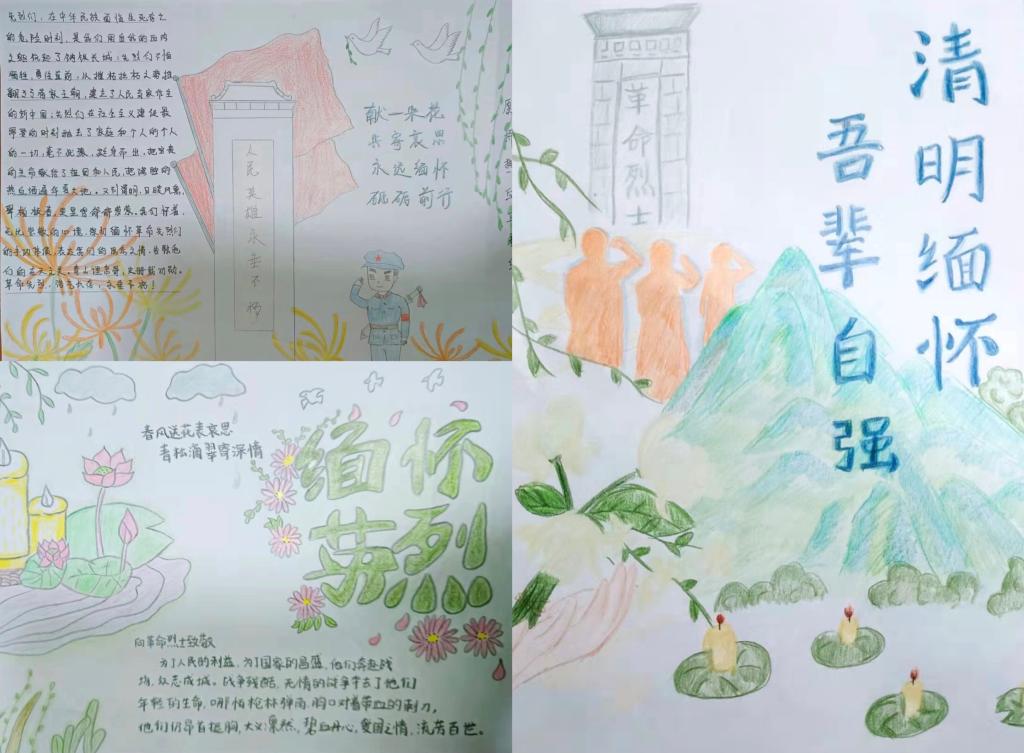 先烈们，在中华民族面临生死存亡
的危险时刻，是你们用自己的血肉
之躯筑起了钢铁长城；先烈们不怕
牺牲，勇往直前，以摧枯拉朽之势推
翻了
建立了人民当家作主
的新中国；先烈们在社会主义建设最
需要的时刻抛去了家庭和个人的
的一切，毫不犹豫，挺身而出，把宝贵
的生命献给了祖国和人民，把满腔的
热血洒遍
又到清明
我们怀着
无比崇敬的心境
缅怀革命先烈们
革命先烈，浩气长存，永垂不朽！
人民英雄永垂不朽
献一朵花
共寄哀思
永远缅怀
砥砺前行
春风送花表哀思
青松滴翠寄深情
缅怀
英烈
向革命烈士致敬
为了人民的利益，为了国家的昌盛，他们奔赴战
场，众志成城。战争残酷，无情的战争夺去了他们
年轻的生命，哪怕枪林弹雨，胸口对着带血的刺刀，
他们仍昂首挺胸，大义凛然，碧血丹心，爱国之情，流芳百世。
革命烈士
清明缅怀
吾辈自强